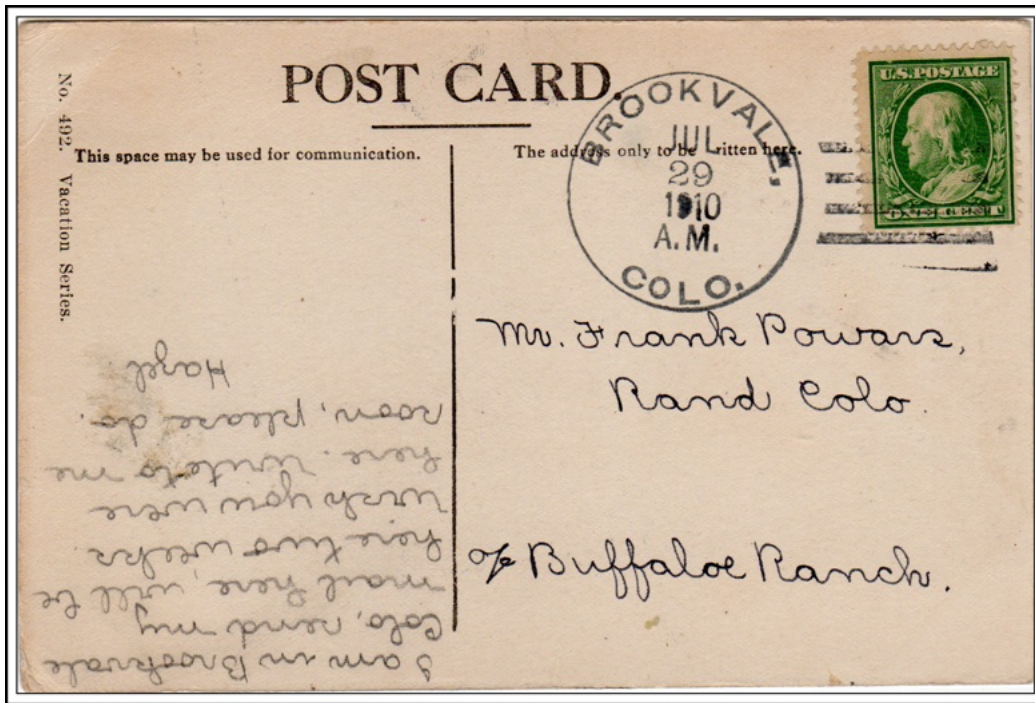 POST CARD.
No. 492. Vacation Series.
This space may be used for communication.
The address only to be written here.
BROOKVALE,
JUL
29
1910
A.M.
COLO.
U.S. POSTAGE
ONE CENT
Mr. Frank Powars,
Rand Colo.
c/o Buffaloe Ranch.
I am in Brookvale
Colo, send my
mail here, will be
here two weeks.
wish you were
here. Write to me
soon, please do.
Hazel